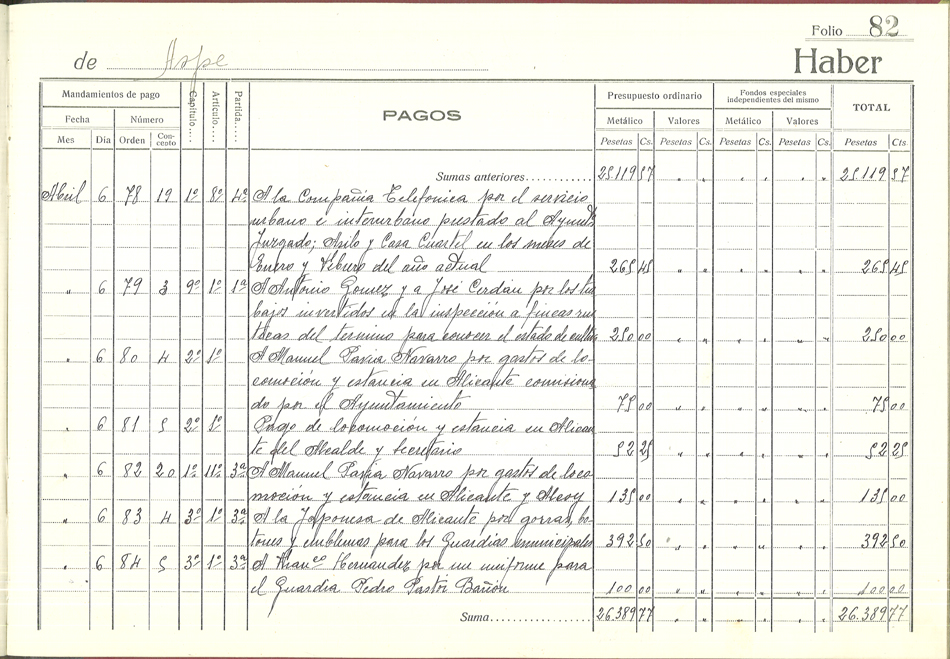 Folio 82
de Aspe Haber
Mandamientos de pago Capítulo.... Artículo.... Partida..... PAGOS Presupuesto ordinario Fondos especiales independientes del mismo TOTAL
Fecha Número Metálico Valores Metálico Valores
Mes Día Orden Concepto Pesetas Cs. Pesetas Cs. Pesetas Cs. Pesetas Cs. Pesetas Cts
Sumas anteriores............ 25119 57 " " " " " " 25119 57
Abril 6 78 19 1º 8º 4ª A la Compañia Telefonica por el servicio
urbano e interurbano prestado al Ayunto
Juzgado; Asilo y Casa Cuartel en los meses de
Enero y Febrero del año actual 265 45 " " " " " " 265 45
" 6 79 3 9º 1º 1ª A Antonio Gomez y a José Cerdan por los tra
bajos invertidos en la inspección a fincas rus
ticas del termino para conocer el estado de cultivo 250 00 " " " " " " 250 00
" 6 80 4 2º 1º A Manuel Pavia Navarro por gastos de lo-
comoción y estancia en Alicante comisiona
do por el Ayuntamiento 75 00 " " " " " " 75 00
" 6 81 5 2º 1º Pago de locomoción y estancia en Alican
te del Alcalde y Secretario 52 25 " " " " " " 52 25
" 6 82 20 1º 11º 3ª A Manuel Pavia Navarro por gastos de loco
moción y estancia en Alicante y Alcoy 135 00 " " " " " " 135 00
" 6 83 4 3º 1º 3ª A la Japonesa de Alicante por gorras, bo-
tones y emblemas para los Guardias municipales 392 50 " " " " " " 392 50
" 6 84 5 3º 1º 3ª A Franco Hernandez por un uniforme para
el Guardia Pedro Pastor Bañón 100 00 " " " " " " 100 00
Suma..................... 26.389 77 " " " " " " 26.389 77